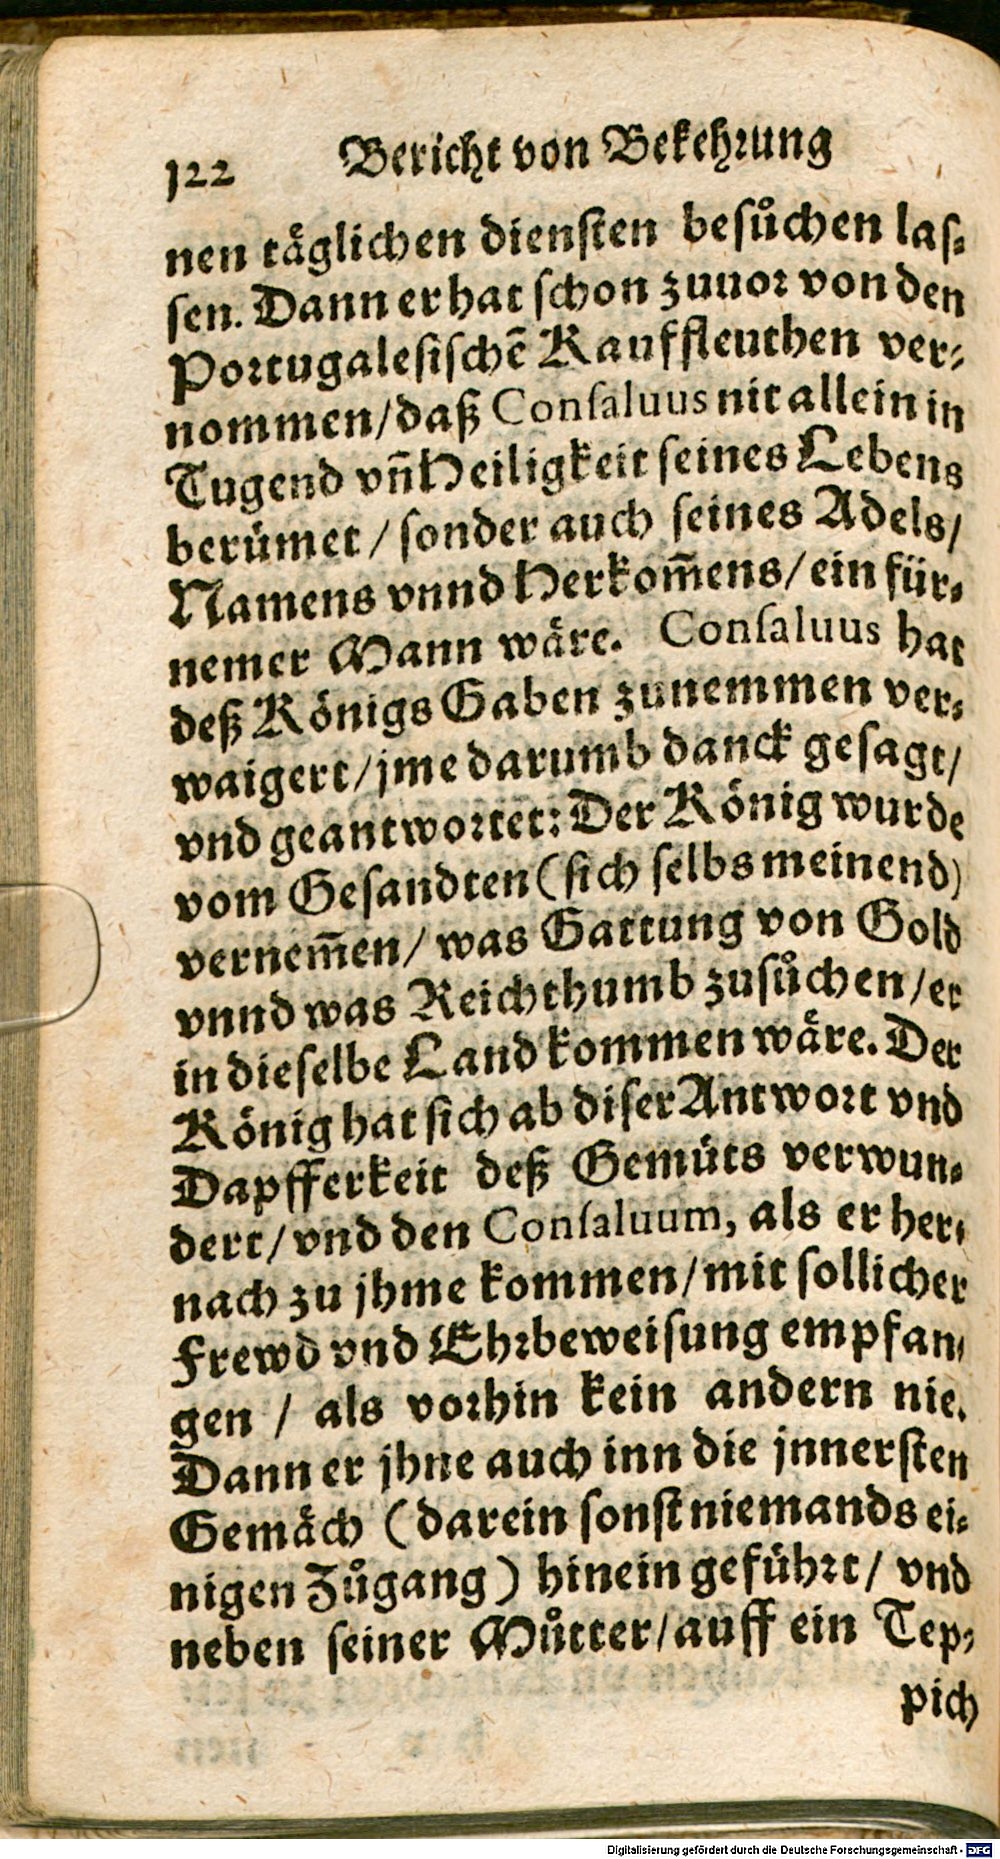 122 Bericht von Bekehrung
nen täglichen diensten besůchen las-
sen. Dann er hat schon zuuor von den
Portugalesischẽ Kauffleuthen ver-
nommen/daß Consaluus nit allein in
Tugend vñ Heiligkeit seines Lebens
berümet / sonder auch seines Adels/
Namens vnnd Herkom̃ens/ein für-
nemer Mann wäre. Consaluus hat
deß Königs Gaben zunemmen ver-
waigert/jme darumb danck gesagt/
vnd geantwortet: Der König wurde
vom Gesandten (sich selbs meinend)
vernem̃en/ was Gattung von Gold
vnnd was Reichthumb zusůchen/er
in dieselbe Land kommen wäre. Der
König hat sich ab diser Antwort vnd
Dapfferkeit deß Gemüts verwun-
dert/vnd den Consaluum, als er her-
nach zu jhme kommen/mit sollicher
Frewd vnd Ehrbeweisung empfan-
gen / als vorhin kein andern nie.
Dann er jhne auch inn die jnnersten
Gemäch (darein sonst niemands ei-
nigen Zůgang) hinein geführt/ vnd
neben seiner Můtter/auff ein Tep-
pich
Digitalisierung gefördert durch die Deutsche Forschungsgemeinschaft - DFG